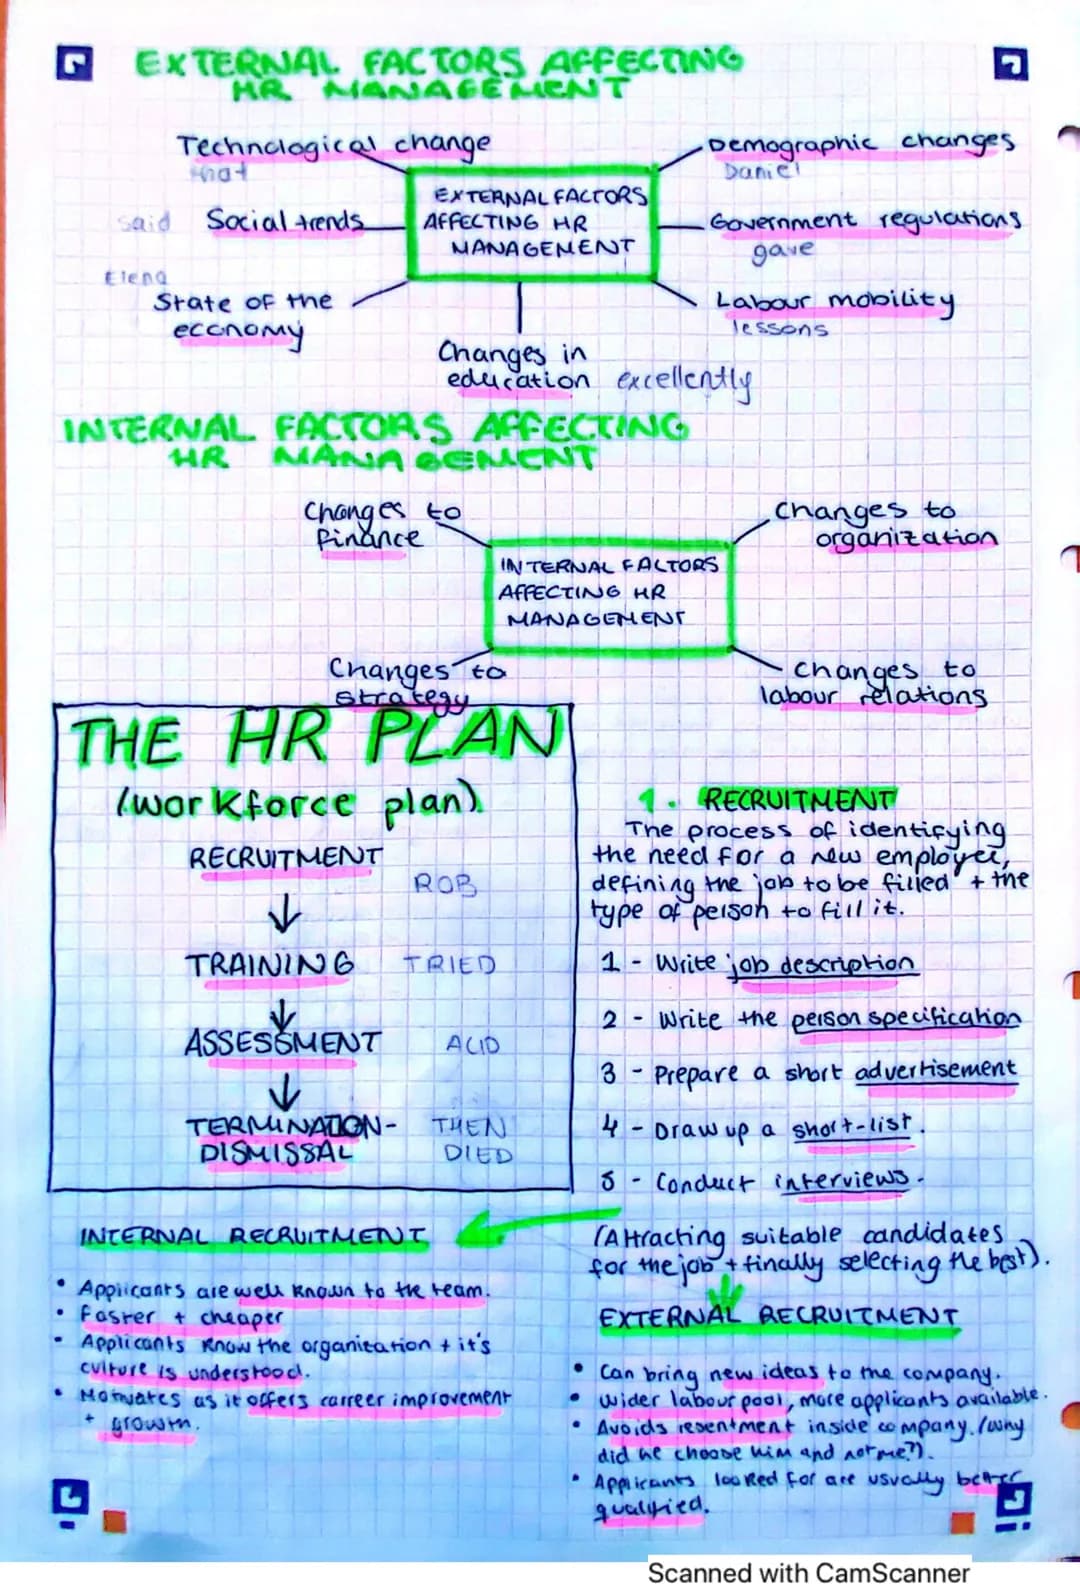 EXTERNAL FACTORS AFFECTING
HR MANAGEMENT
Technological change
that
Said Social trends
Elena
State of the
economy
EXTERNAL FACTORS
AFFECTING HR
MANAGEMENT
Demographic changes
Daniel
Government regulations
gave
Labour mobility
lessons
Changes in
education excellently
INTERNAL FACTORS AFFECTING
HR MANAGEMENT
Changes to
finance
Changes to
organization
INTERNAL FACTORS
AFFECTING HR
MANAGEMENT
Changes to
strategy
Changes to
labour relations
THE HR PLAN
(workforce plan)
RECRUITMENT
ROB
TRAINING TRIED
ASSESSMENT ACID
TERMINATION- THEN
DISMISSAL DIED
1. RECRUITMENT
The process of identifying
the need for a new employer,
defining the job to be filled + the
type of person to fill it.
1 - Write job description
2 - Write the person specification
3 - Prepare a short advertisement
4 - Draw up a short-list.
5 - Conduct interviews.
(Attracting suitable candidates
for the job + finally selecting the best).
INTERNAL RECRUITMENT
• Applicants are well known to the team.
• Faster + cheaper
• Applicants know the organization + it's
culture is understood.
• Motivates as it offers carreer improvement
+ growth.
EXTERNAL RECRUITMENT
• Can bring new ideas to the company.
• Wider labour pool, more applicants available.
• Avoids resentment inside company. (why
did he choose him and not me?).
• Applicants looked for are usually better
qualified.
Scanned with CamScanner